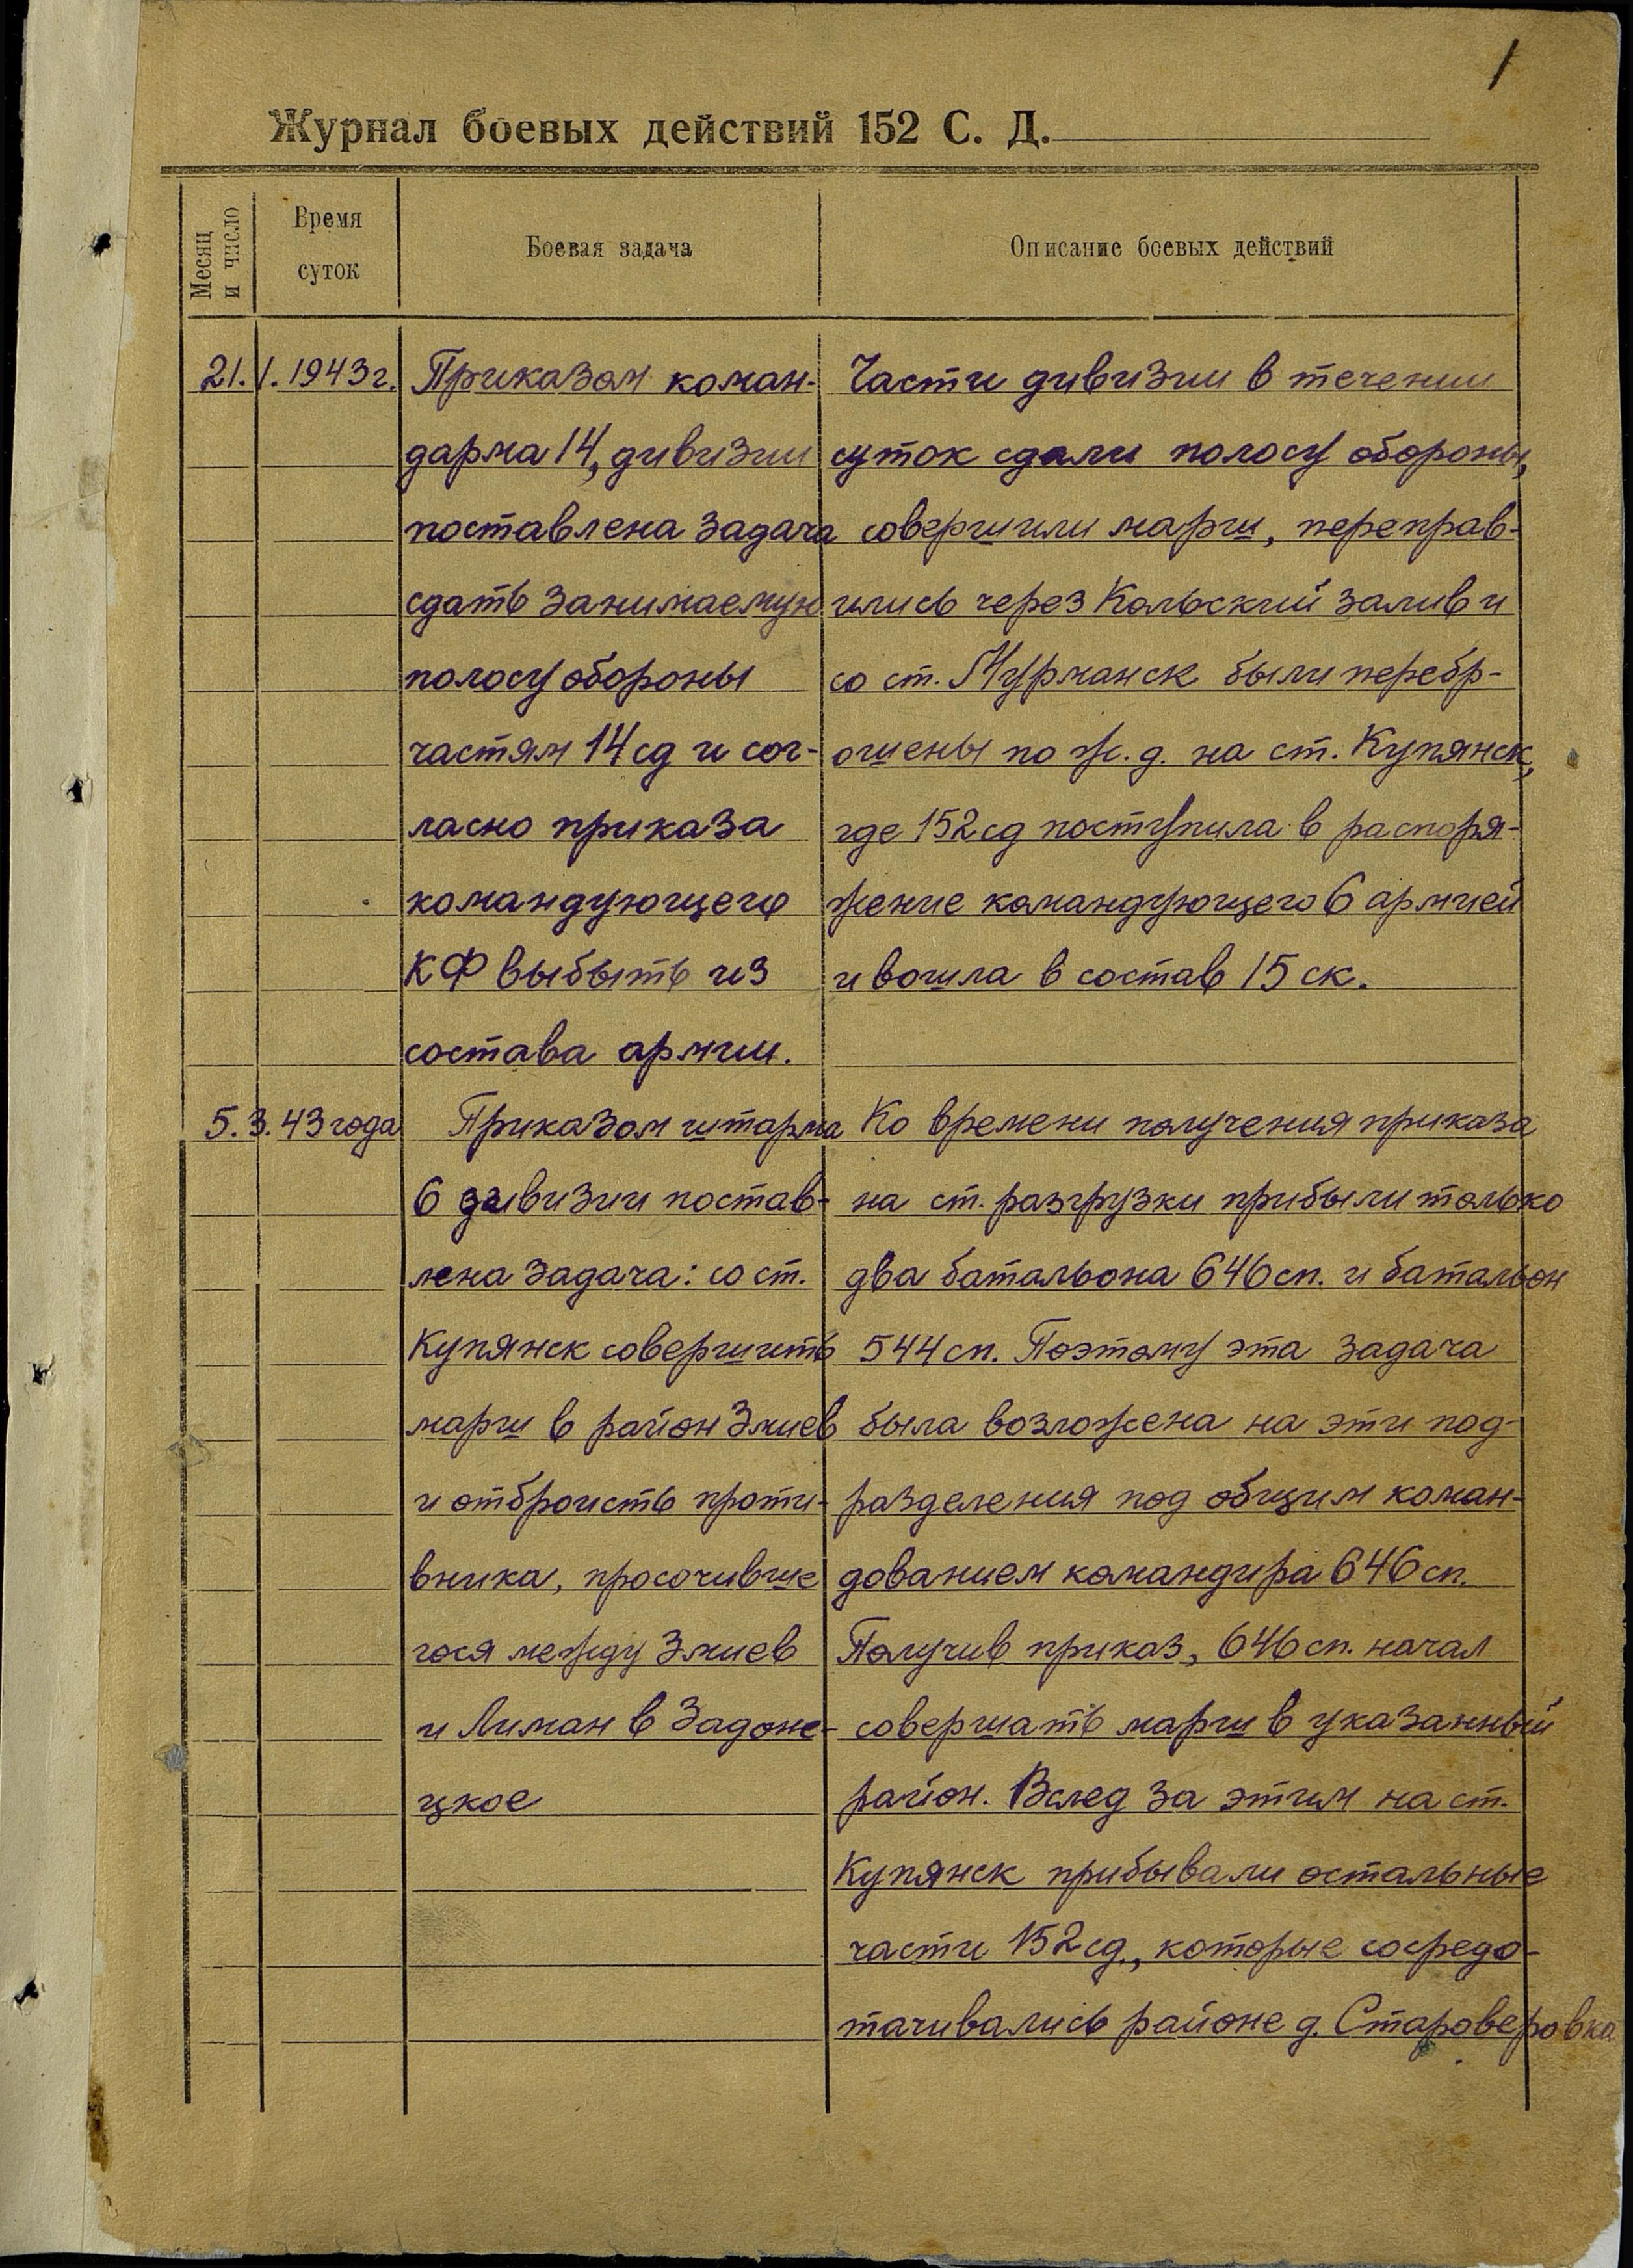 1
Журнал боевых действий 152 С. Д.
Месяц и число
Время суток
Боевая задача
Описание боевых действий
21.1.1943г.
Приказом коман-
дарма 14, дивизии
поставлена задача
сдать занимаемую
полосу обороны
частям 14 сд и сог-
ласно приказа
командующего
КФ выбыть из
состава армии.
Части дивизии в течении
суток сдали полосу обороны,
совершили марш, переправ-
ились через Кольский залив и
со ст. Мурманск были перебр-
ошены по ж.д. на ст. Купянск,
где 152 сд поступила в распоря-
жение командующего 6 армией
и вошла в состав 15 ск.
5.3.43 года
Приказом штарма
6 дивизии постав-
лена задача: со ст.
Купянск совершить
марш в район Змиев
и отброисть проти-
вника, просочивше
гося между Змиев
и Лиман в Задоне-
цкое
Ко времени получения приказа
на ст. разгрузки прибыли только
два батальона 646 сп. и батальон
544 сп. Поэтому эта задача
была возложена на эти под-
разделения под общим коман-
дованием командира 646 сп.
Получив приказ, 646 сп. начал
совершать марш в указанный
район. Вслед за этим на ст.
Купянск прибывали остальные
части 152 сд., которые сосредо-
тачивались районе д. Староверовка